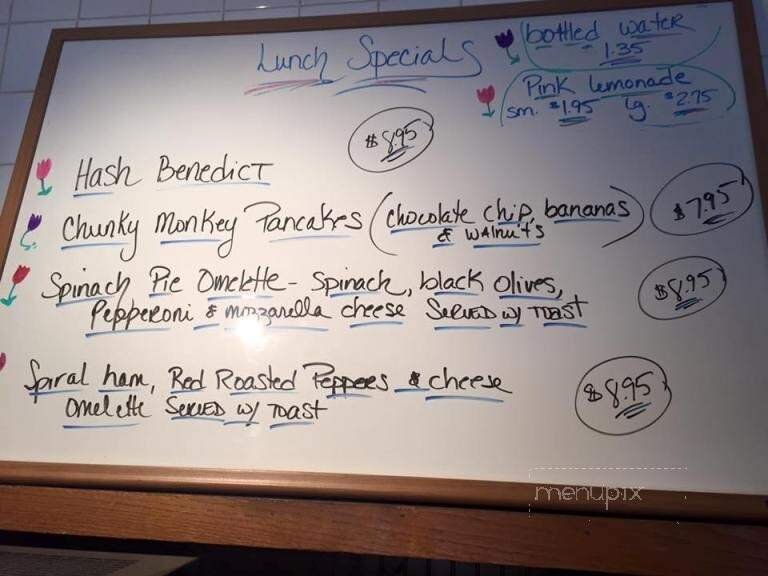 Lunch Specials
bottled water
1.35
Pink lemonade
sm. $1.95 lg. $2.75
$8.95
Hash Benedict
Chunky Monkey Pancakes (chocolate chip, bananas
& walnuts)
$7.95
Spinach Pie Omelette - Spinach, black olives,
Pepperoni & mozzarella cheese Served w/ Toast
$8.95
Spiral ham, Red Roasted Peppers & cheese
Omelette Served w/ Toast
$8.95
menupix